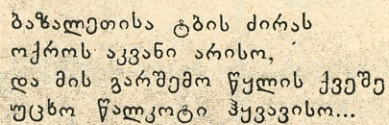 ბაზალეთისა ტბის ძირას
ოქროს აკვანი არისო,
და მის გარშემო წყლის ქვეშე
უცხო წალკოტი ჰყვავისო...